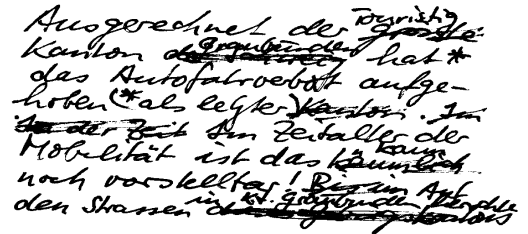 Ausgerechnet der Touristig
Kanton Graubünden hat *
das Autofahrverbot aufge-
hoben (* als letzter Kanton. Im
Im Zeitalter der
Mobilität ist das kaum
noch vorstellbar! Bis um Auf
den Strassen in Kt. Graubünden herrschte